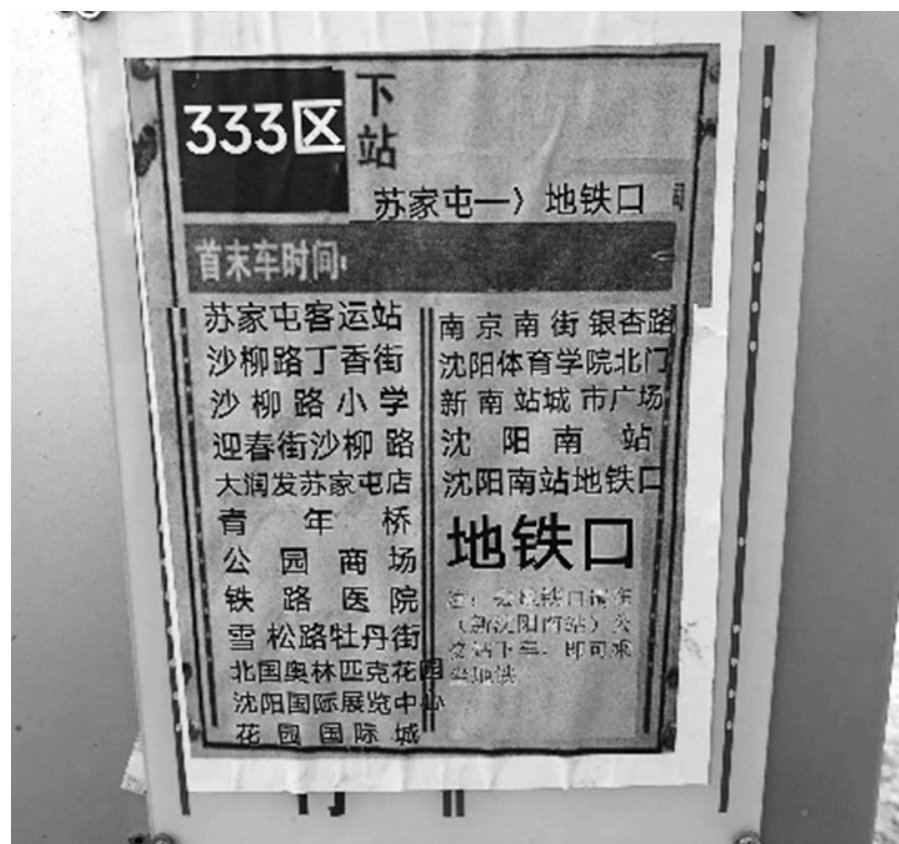 333区
下站
苏家屯—〉地铁口
首末车时间:
苏家屯客运站
沙柳路丁香街
沙柳路小学
迎春街沙柳路
大润发苏家屯店
青年桥
公园商场
铁路医院
雪松路牡丹街
北国奥林匹克花园
沈阳国际展览中心
花园国际城
南京南街银杏路
沈阳体育学院北门
新南站城市广场
沈阳南站
沈阳南站地铁口
地铁口
注:去地铁口请在
(新沈阳南站)公
交站下车,即可乘
坐地铁